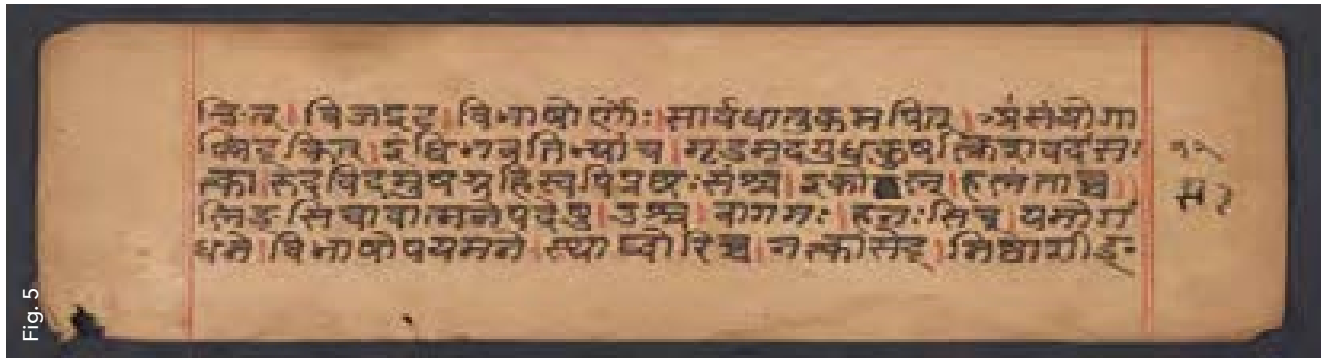 ङित् । विजइट् । विभाषोर्णोः । सार्वधातुकमपित् । असंयोगा
ल्लिट् कित् । इंधिभवतिभ्यां च । मृडमृदगुधकुषक्लिशवदवसः
क्त्वा । रुदविदमुषग्रहिस्वपिप्रछः संश्च । इको झल् । हलंताच्च ॥
लिङ्सिचावात्मनेपदेषु । उश्च । वागमः । हनः सिच् । यमोगं
धने । विभाषोपयमने । स्थाघ्वोरिच्च । नक्त्वासेट् । निष्ठाशीङ्
Fig. 5